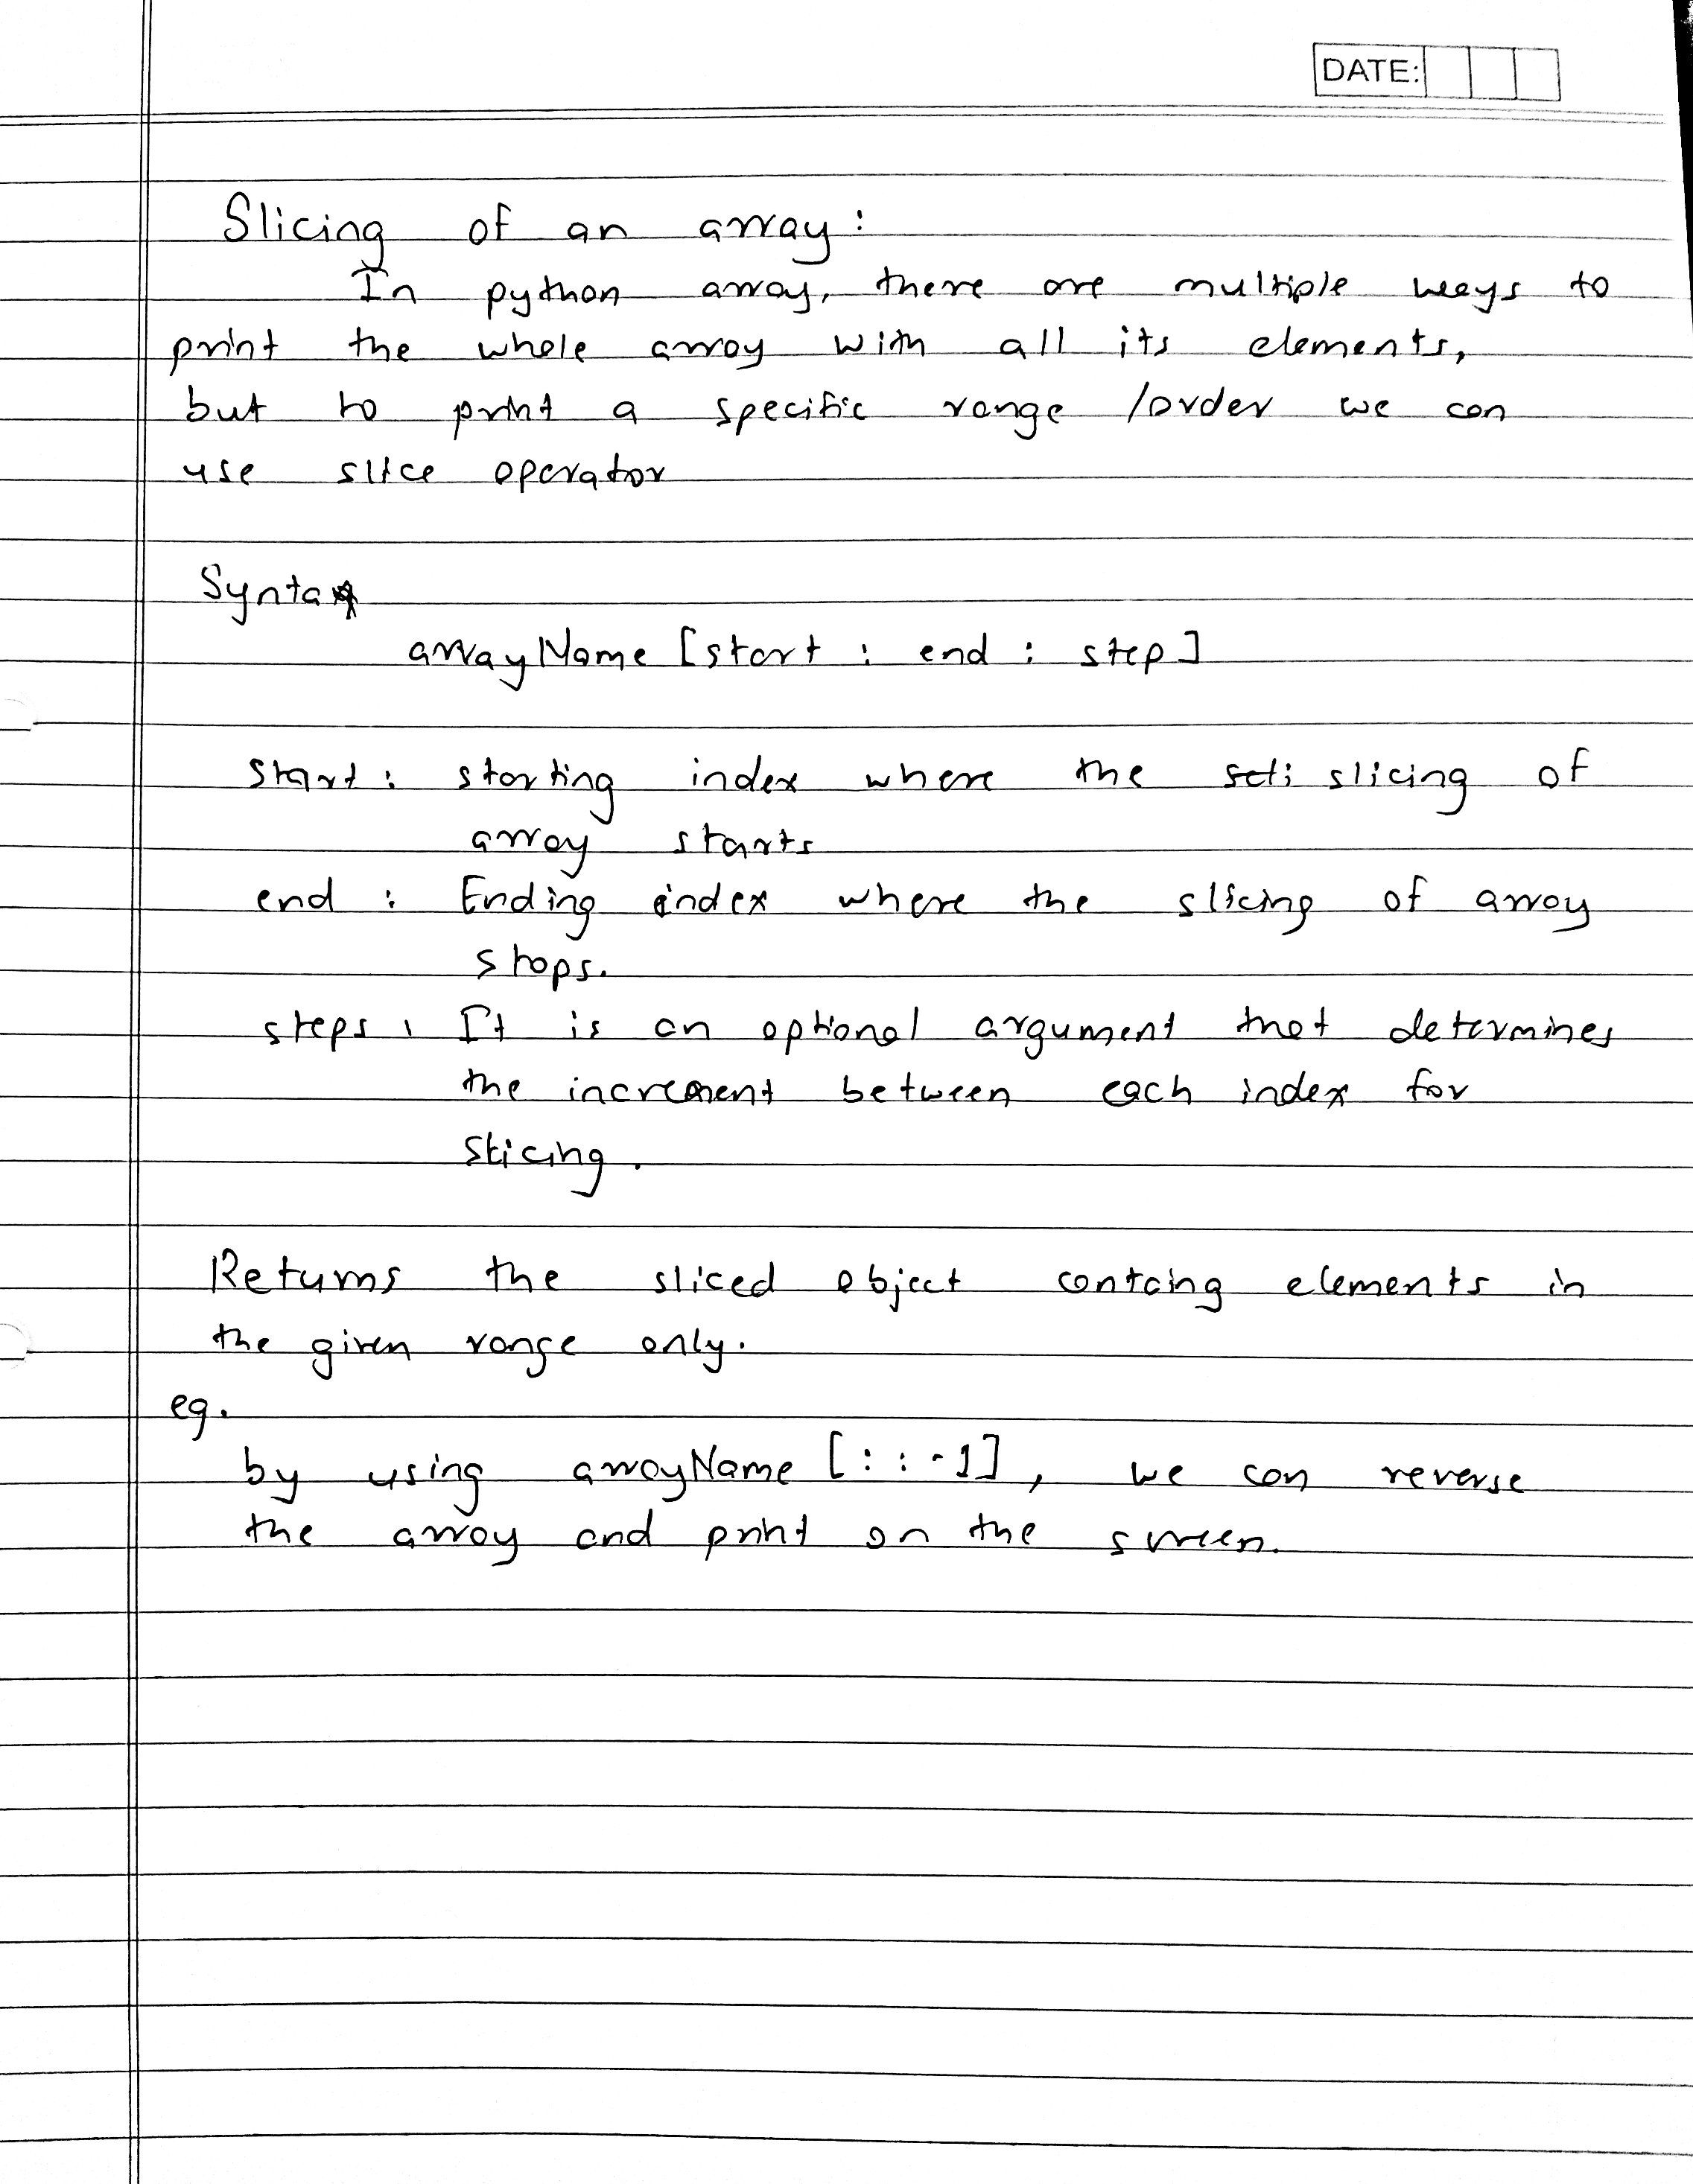 DATE:
Slicing of an array:
In python array, there are multiple ways to
print the whole array with all its elements,
but to print a specific range /order we can
use slice operator
Syntax
arrayName [start : end : step]
start : starting index where the slicing of
array starts
end : Ending index where the slicing of array
stops.
steps : It is an optional argument that determines
the increment between each index for
slicing.
Returns the sliced object containg elements in
the given range only.
eg.
by using arrayName [: : -1], we can reverse
the array and print on the screen.